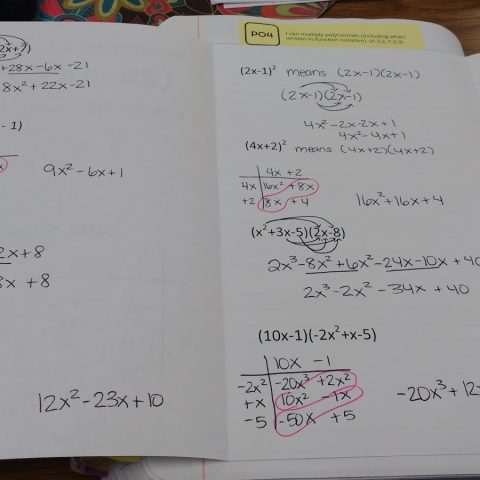 2x+7)
+28x-6x-21
8x² + 22x-21
- 1)
9x² - 6x+1
2x+8
3x +8
12x² -23x+10
PO4
I can multiply polynomials (including when
written in function notation). (A.3.2, F.3.3)
(2x-1)² means (2x-1)(2x-1)
(2x-1)(2x-1)
4x² -2x-2x +1
4x² -4x+1
(4x+2)² means (4x+2)(4x+2)
4x +2
4x 16x² +8x
+2 8x +4
16x² +16x +4
(x²+3x-5)(2x-8)
2x³-8x² +6x² -24x-10x +40
2x³-2x² -34x +40
(10x-1)(-2x²+x-5)
10x -1
-2x² -20x³ +2x²
+x 10x² -1x
-5 -50x +5
-20x³+12